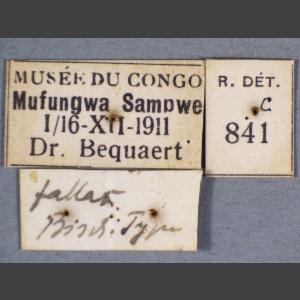 MUSÉE DU CONGO
Mufungwa Sampwe
1/16-XII-1911
Dr. Bequaert
R. DÉT.
C
841
fallax
Bisch. Type